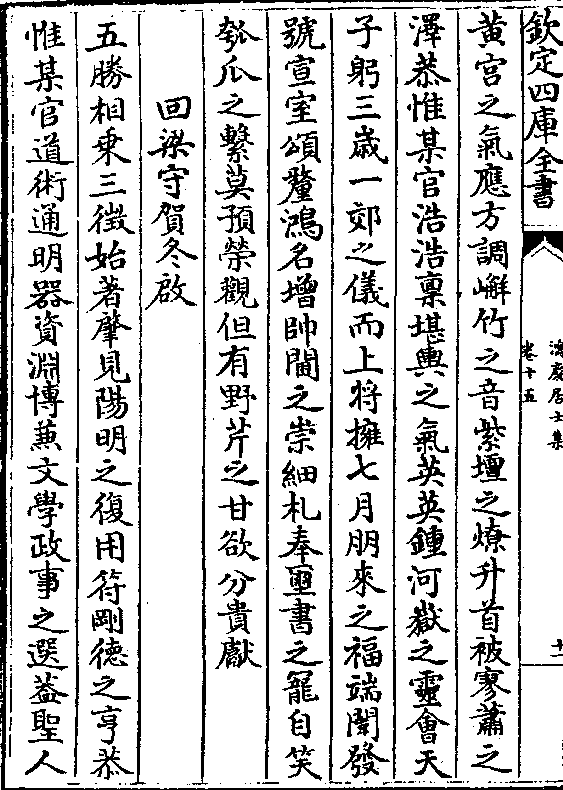 欽定四庫全書
鴻慶居士集
卷十五
十一
黄宫之氣應方調嶰竹之音紫壇之燎升首被寥蕭之
澤恭惟某官浩浩禀堪輿之氣英英鍾河嶽之靈會天
子躬三歳一郊之儀而上将擁七月朋來之福端闈發
號宣室頌釐鴻名增帥閫之崇細札奉璽書之寵自笑
匏瓜之繫莫預榮觀但有野芹之甘欲分貴獻
回梁守賀冬啟
五勝相乗三微始著肇見陽明之復用符剛德之亨恭
惟某官道術通明器資淵博兼文學政事之選葢聖人